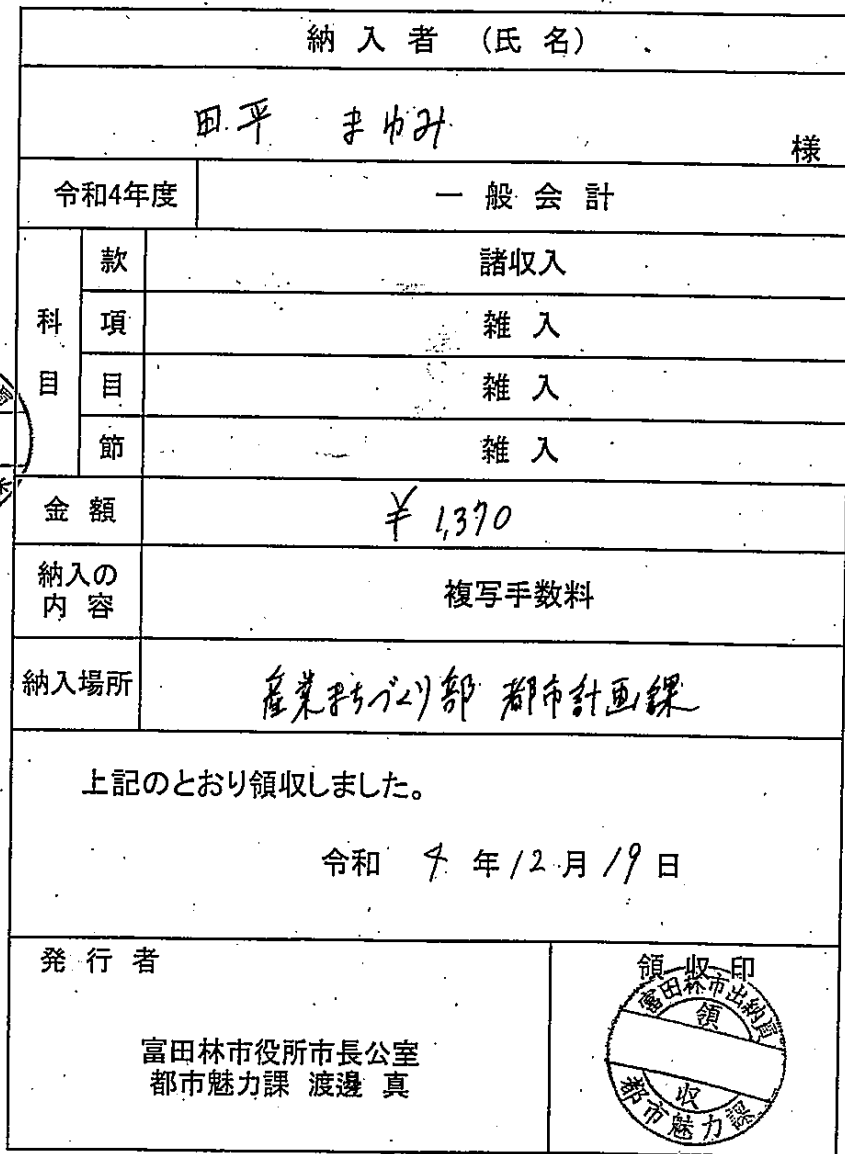 納入者 (氏名)
田平 まゆみ 様
令和4年度 一般会計
科目
款 諸収入
項 雑入
目 雑入
節 雑入
金額 ¥1,370
納入の内容 複写手数料
納入場所 産業まちづくり部 都市計画課
上記のとおり領収しました。
令和 4 年 12 月 19 日
発行者
富田林市役所市長公室
都市魅力課 渡邊 真
領収印
富田林市出納員
領
収
都市魅力課